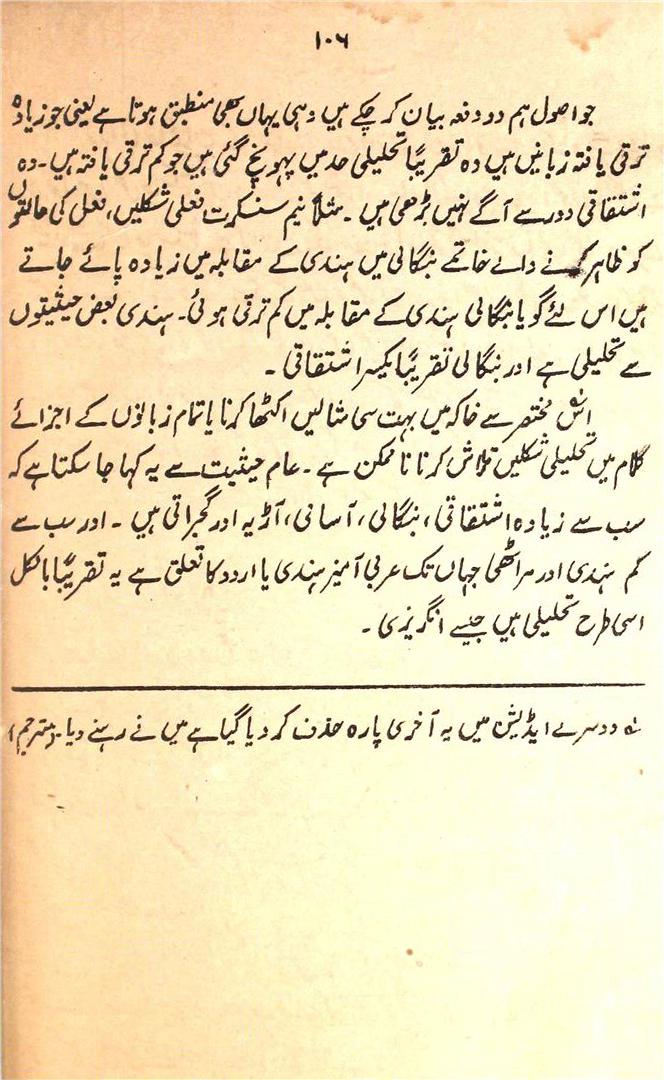 ۱۰۶
جو اصول ہم دو دفعہ بیان کر چکے ہیں وہی یہاں بھی منطبق ہوتا ہے یعنی جو زیادہ
ترقی یافتہ زبانیں ہیں وہ تقریباً تحلیلی حد میں پہونچ گئی ہیں جو کم ترقی یافتہ ہیں۔ وہ
اشتقاقی دور سے آگے نہیں بڑھی ہیں۔ مثلاً نیم سنسکرت فعلی شکلیں، فعل کی حالتوں
کو ظاہر کرنے والے خاتمے بنگالی میں ہندی کے مقابلہ میں زیادہ پائے جاتے
ہیں اس لئے گویا بنگالی ہندی کے مقابلہ میں کم ترقی ہوئی۔ ہندی بعض حیثیتوں
سے تحلیلی ہے اور بنگالی تقریباً یکسر اشتقاقی۔
اس مختصر سے خاکہ میں بہت سی مثالیں اکٹھا کرنا یا تمام زبانوں کے اجزائے
کلام میں تحلیلی شکلیں تلاش کرنا ناممکن ہے۔ عام حیثیت سے یہ کہا جا سکتا ہے کہ
سب سے زیادہ اشتقاقی، بنگالی، آسامی، آڑیہ اور گجراتی ہیں۔ اور سب سے
کم ہندی اور مراٹھی جہاں تک عربی آمیز ہندی یا اردو کا تعلق ہے یہ تقریباً بالکل
اسی طرح تحلیلی ہیں جیسے انگریزی۔
لہ دوسرے ایڈیشن میں یہ آخری پارہ حذف کر دیا گیا ہے میں نے رہنے دیا۔ (مترجم)